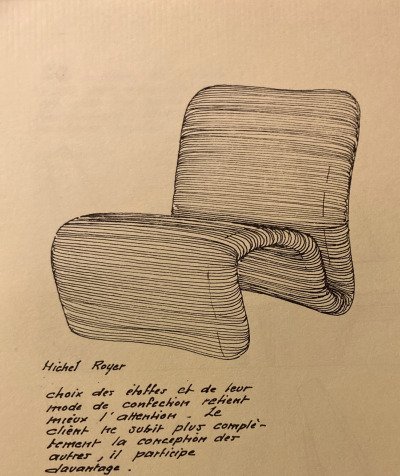 Michel Royer
choix des étoffes et de leur
mode de confection retient
mieux l'attention. Le
client ne subit plus complè-
tement la conception des
autres, il participe
davantage.